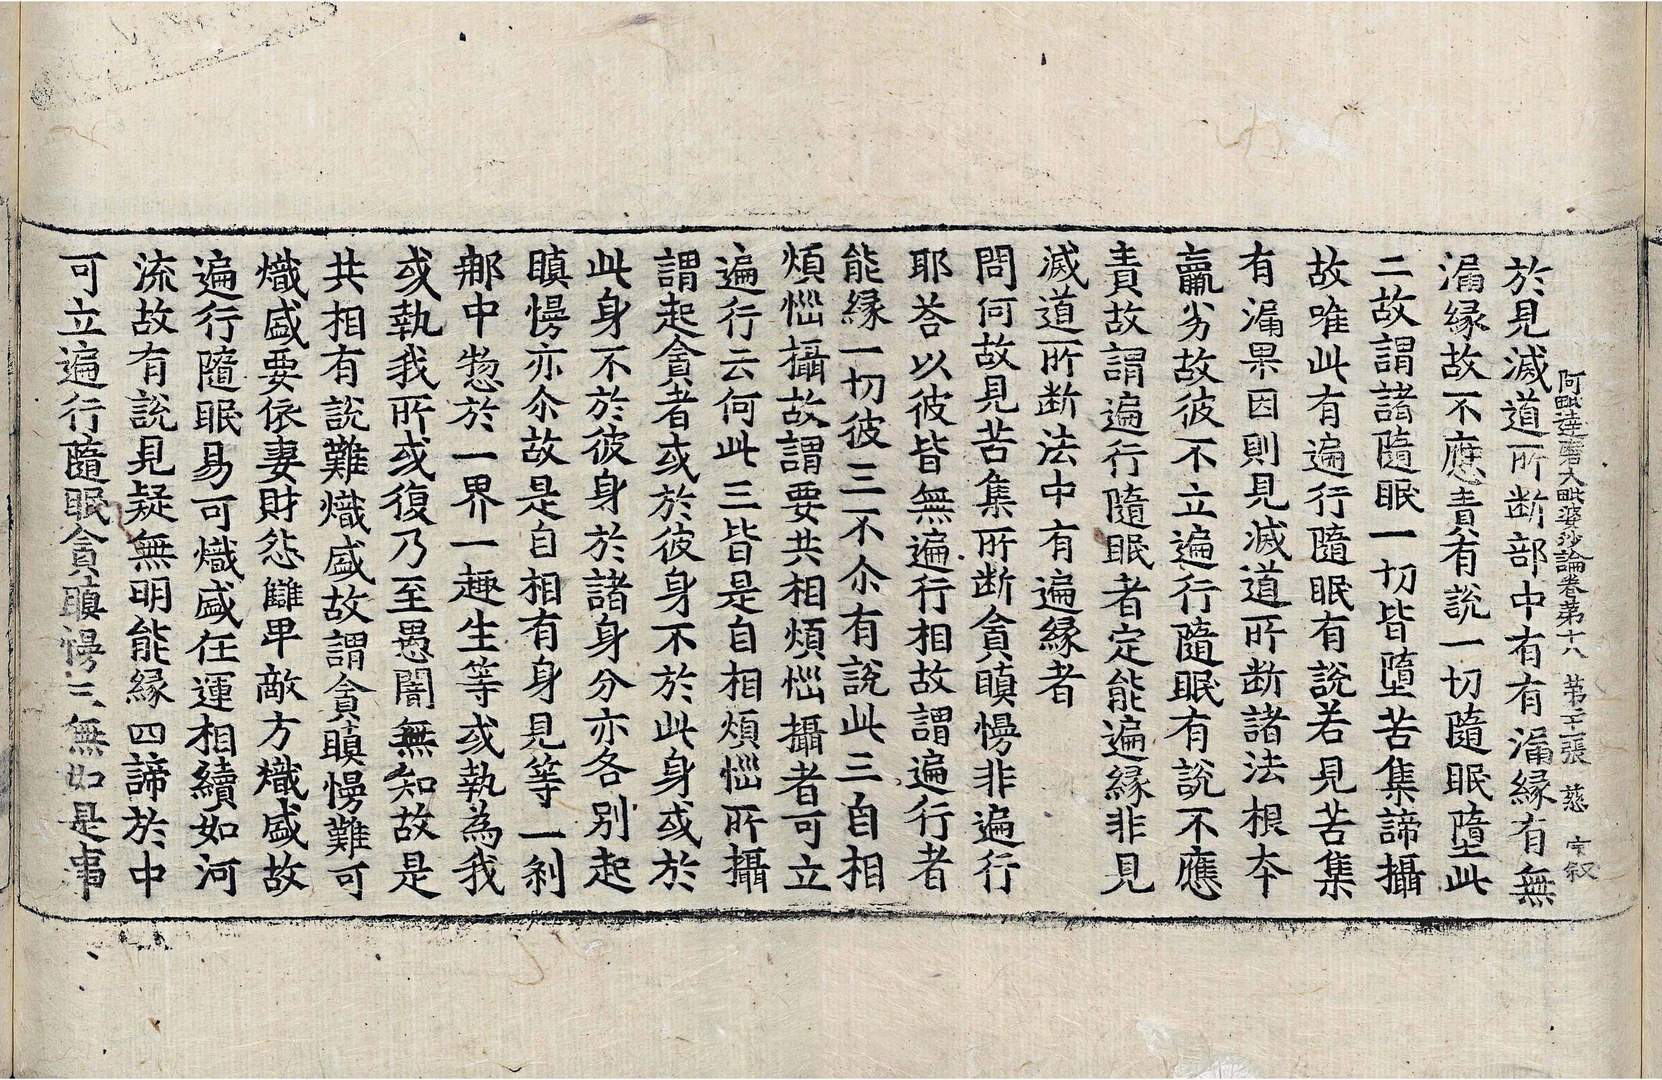 阿毗達磨大毗婆沙論卷第十八 第二十張 慈 宋叙
於見滅道所斷部中有有漏緣有無
漏緣故不應責有說一切隨眠墮此
二故謂諸隨眠一切皆墮苦集諦攝
故唯此有遍行隨眠有說若見苦集
有漏果因則見滅道所斷諸法根本
羸劣故彼不立遍行隨眠有說不應
責故謂遍行隨眠者定能遍緣非見
滅道所斷法中有遍緣者
問何故見苦集所斷貪瞋慢非遍行
耶荅以彼皆無遍行相故謂遍行者
能緣一切彼三不尒有說此三自相
煩惱攝故謂要共相煩惱攝者可立
遍行云何此三皆是自相煩惱所攝
謂起貪者或於彼身不於此身或於
此身不於彼身於諸身分亦各別起
瞋慢亦尒故是自相有身見等一剎
那中惣於一界一趣生等或執為我
或執我所或復乃至愚闇無知故是
共相有說難熾盛故謂貪瞋慢難可
熾盛要依妻財怨讎卑敵方熾盛故
遍行隨眠易可熾盛任運相續如河
流故有說見疑無明能緣四諦於中
可立遍行隨眠貪瞋慢三無如是事